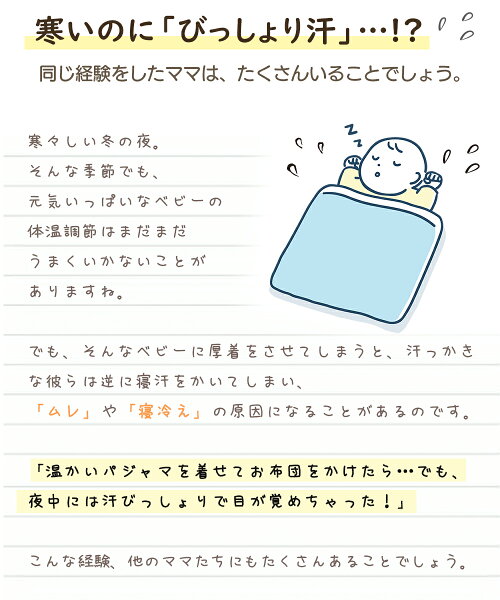 寒いのに「びっしょり汗」…!?
同じ経験をしたママは、たくさんいることでしょう。
zzz
寒々しい冬の夜。
そんな季節でも、
元気いっぱいなベビーの
体温調節はまだまだ
うまくいかないことが
ありますね。
でも、そんなベビーに厚着をさせてしまうと、汗っかき
な彼らは逆に寝汗をかいてしまい、
「ムレ」や「寝冷え」の原因になることがあるのです。
「温かいパジャマを着せてお布団をかけたら…でも、
夜中には汗びっしょりで目が覚めちゃった！」
こんな経験、他のママたちにもたくさんあることでしょう。